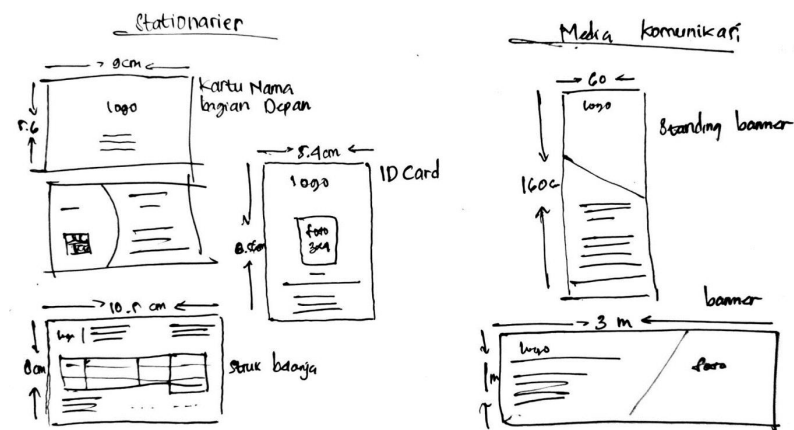 Stationarier
9cm
5.6
logo
Kartu Nama
bagian Depan
5.4cm
ID Card
logo
foto
3x4
10.5 cm
logo
8cm
Struk belanja
Media komunikasi
60
logo
Standing banner
banner
3 m
logo
1m
foto